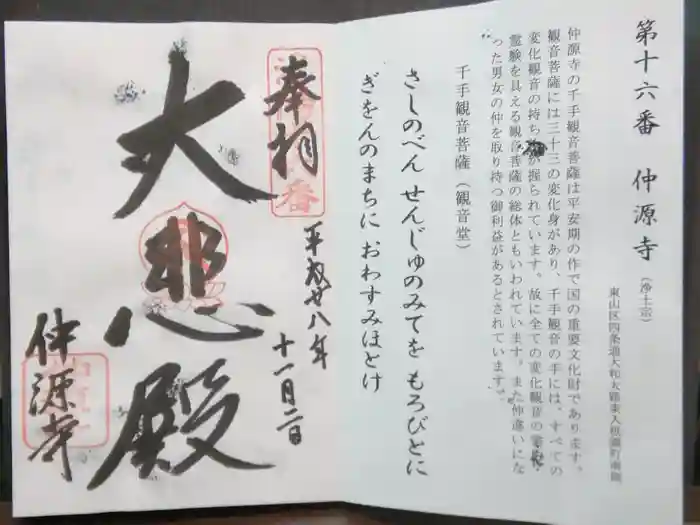 第十六番 仲源寺 (浄土宗)
東山区四条通大和大路東入祇園町南側
仲源寺の千手観音菩薩は平安期の作で国の重要文化財であります。
観音菩薩には三十三の変化身があり、千手観音の手には、すべての
変化観音の持ち が握られています。故に全ての変化観音の
霊験を具える観音菩薩の総体ともいわれています。また仲違いにな
った男女の仲を取り持つ御利益があるとされています。
千手観音菩薩(観音堂)
さしのべん せんじゅのみてを もろびとに
ぎをんのまちに おわすみほとけ
奉拝
平成廿八年
十一月二日
大悲殿
仲源寺